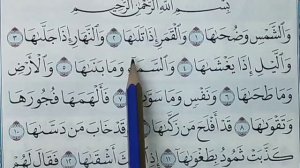 بِسْمِ اللَّهِ الرَّحْمَٰنِ الرَّحِيمِ
وَالشَّمْسِ وَضُحَاهَا ١ وَالْقَمَرِ إِذَا تَلَاهَا ٢ وَالنَّهَارِ إِذَا جَلَّاهَا ٣
وَاللَّيْلِ إِذَا يَغْشَاهَا ٤ وَالسَّمَاءِ وَمَا بَنَاهَا ٥ وَالْأَرْضِ
وَمَا طَحَاهَا ٦ وَنَفْسٍ وَمَا سَوَّاهَا ٧ فَأَلْهَمَهَا فُجُورَهَا
وَتَقْوَاهَا ٨ قَدْ أَفْلَحَ مَنْ زَكَّاهَا ٩ وَقَدْ خَابَ مَنْ دَسَّاهَا ١٠
كَذَّبَتْ ثَمُودُ بِطَغْوَاهَا ١١ أَشْقَاهَا ١٢ فَقَالَ لَهُمْ